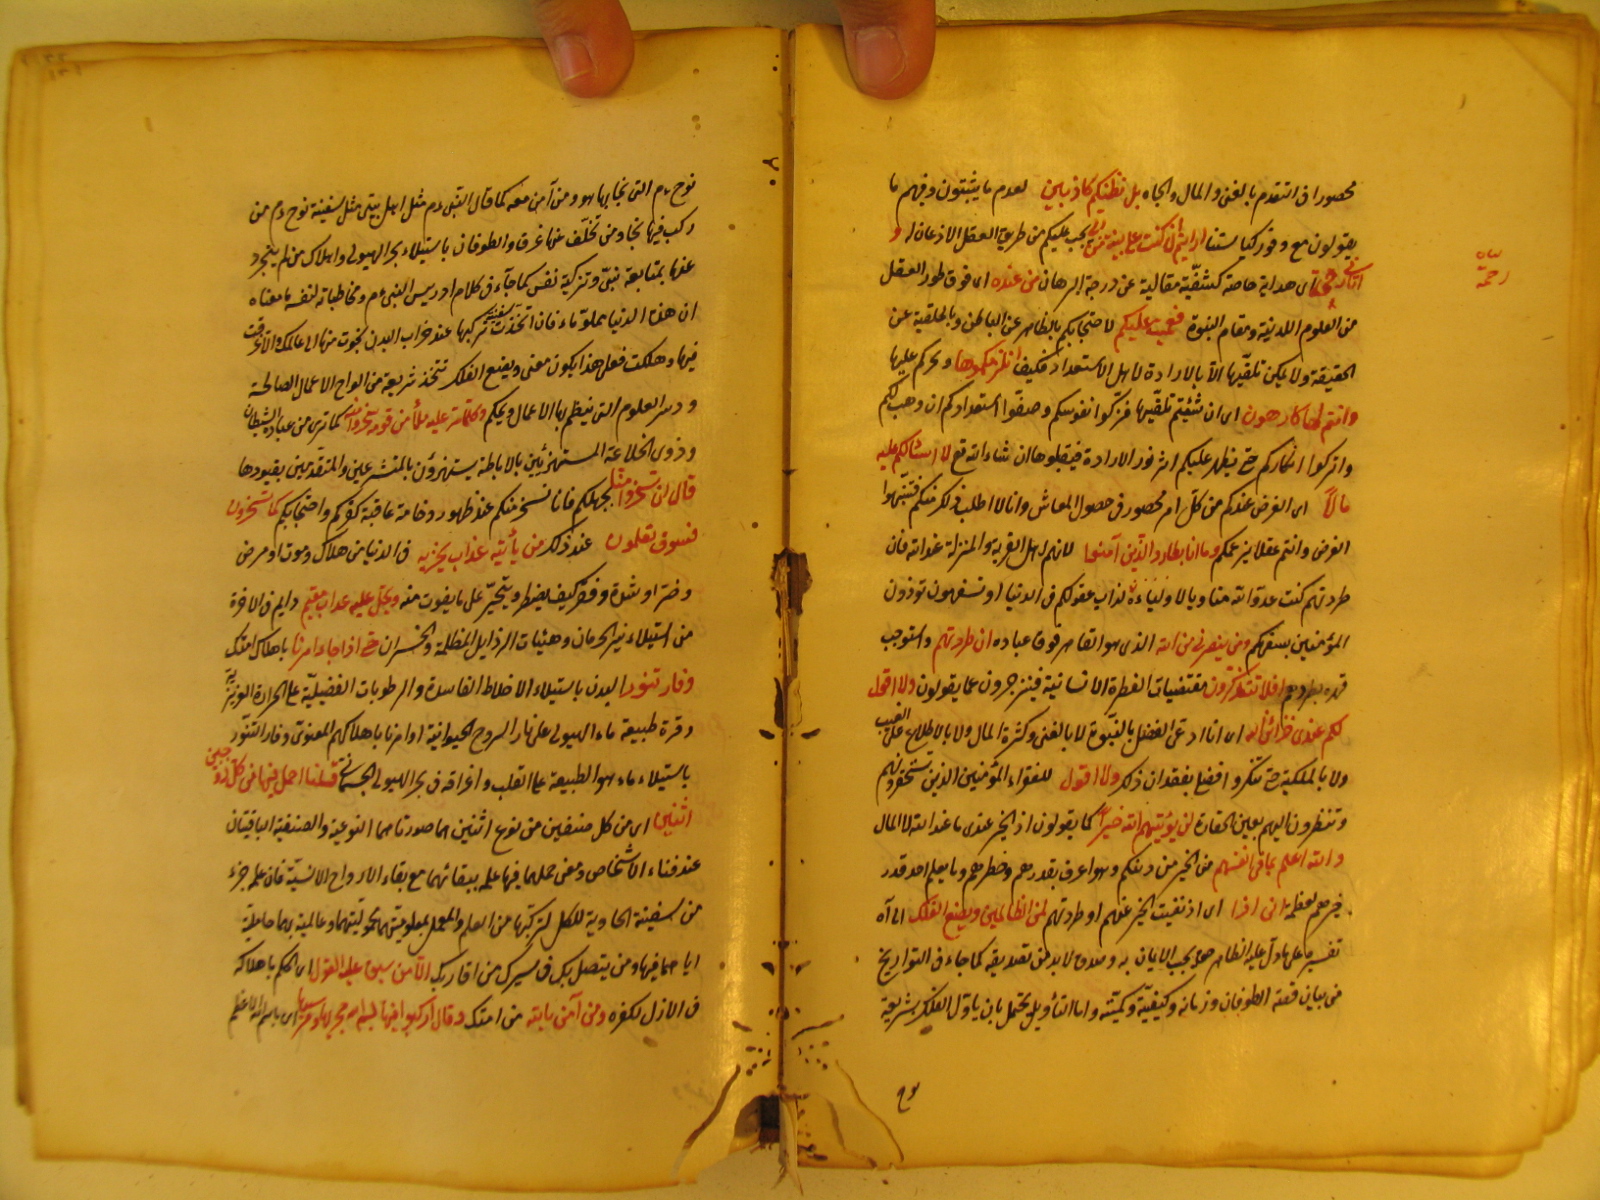 محصورا فى التقدم بالغنى والمال والجاه بل نظنكم كاذبين لعدم ما يثبتون وفهم ما
يقولون مع وفور كياستنا ارايتم ان كنت على بينة من ربى يجب عليكم من طريق العقل الاذعان له و
رحمة
اتانى رحمة اى هداية خاصة كشفية متعالية عن درجة البرهان من عنده اى فوق طور العقل
من العلوم اللدنية ومقام النبوة فعميت عليكم لاحتجابكم بالظاهر عن الباطن وبالخلقية عن
الحقيقة ولا يمكن تلقيها الا بالارادة لاهل الاستعداد فكيف انلزمكموها ونجركم عليها
وانتم لها كارهون اى ان شئتم تلقيها فزكوا نفوسكم وصفوا استعدادكم ان وهب لكم
واتركوا انكاركم حتى يظهر عليكم اثر نور الارادة فتقبلوها ان شاء الله تع لا اسئلكم عليه
مالا اى الغرض عندكم من كل امر محصور فى حصول المعاش وانا لا اطلب ذلك منكم فتنبهوا
الغرض وانتم عقلا بزعمكم وما انا بطارد الذين آمنوا لانهم اهل القربة والمنزلة عند الله فان
طردتهم كنت عدو الله مناويا لاوليائه لذاب عقولكم فى الدنيا او تسفهون تؤذون
المؤمنين بسفهكم ومن ينصرنى من الله الذى هو القاهر فوق عباده ان طردتهم واستوجب
قهره بطردهم افلا تتذكرون مقتضيات الفطرة الانسانية فتنزجرون عما يقولون ولا اقول
لكم عندى خزائن الله اى انا ادعى الفضل بالنبوة لا بالغنى وكثرة المال ولا بالاطلاع على الغيب
ولا بالملكية حتى تنكروا فضلى بفقدان ذلك ولا اقول للفقراء المؤمنين الذين تستحقرونهم
وتنظرون اليهم بعين الحقارة لن يؤتيهم الله خيرا كما يقولون اذ الخير عندى ما عند الله لا المال
والله اعلم بما فى انفسهم من الخير من دينكم وهو اعرف بقدرهم وخطرهم وما يعلم احد قدر
خيرهم لعظمه انى اذا اى اذ نفيت الخير عنهم او طردتهم لمن الظالمين ويصنع الفلك الى آه
تفسيره على ما دل عليه الظاهر حق يجب الايمان به وصدق لا بد من تصديقه كما جاء فى التواريخ
من بيان قصة الطوفان وزمانه وكيفيته وكميته واما التأويل يحتمل بان يأول الفلك بشريعة
نوح
نوح ءم التى نجا بها هو ومن آمن معه كما قال النبى ءم مثل اهل بيتى مثل سفينة نوح ءم من
ركب فيها نجا ومن تخلف عنها غرق والطوفان باستيلاء بحر الهيولى واهلاك من لم يتجرد
عنها بمتابعة نبى وتزكية نفس كما جاء فى كلام ادريس النبى ءم ومخاطباته لنفسه ما معناه
ان هذه الدنيا مملوة ماء فان اتخذت سفينة تركبها عند خراب البدن نجوت منها الى عالمك والا غرقت
فيها وهلكت فعلى هذا يكون معنى ويصنع الفلك تتخذ شريعة من الواح الاعمال الصالحة
ودسر العلوم التى ينظم بها الاعمال ويحكم وكلما مر عليه ملأ من قومه سخروا منه كما ترى من عباد الشيطان
وذوى الخلاعة المستهزئين بالاباطة يستهزؤن بالمتشرعين والمتقدمين بقيودها
قال ان تسخروا منا بجهلكم فانا نسخر منكم عند ظهور وخامة عاقبة كفركم واحتجابكم كما تسخرون
فسوف تعلمون عند ذلك من يأتيه عذاب يخزيه فى الدنيا من هلاك وموت او مرض
وضر او شدة وفقر كيف يضطر ويتحير على ما يفوت منه ويحل عليه عذاب مقيم دايم فى الاخرة
من استيلاء نير الحرمان وهيئات الرذايل المظلمة والخسران حتى اذا جاء امرنا باهلاك امتك
وفار تنور البدن باستيلاء الاخلاط الفاسدة والرطوبات الفضلية على الحرارة الغريزية
وقوة طبيعة ماء الهيولى على نار الروح الحيوانية او امرنا باهلاكهم المعنوى وفار التنور
باستيلاء ماء هو الطبيعة على القلب واغراقه فى بحر الهيولى الجسمانى قلنا احمل فيها من كل زوجين
اثنين اى من كل صنفين من نوع اثنين هما صورتاهما النوعية والصنفية الباقيتان
عند فناء الاشخاص ومعنى حملهما فيها علمه ببقائهما مع بقاء الارواح الانسية فان علمه جزء
من سفينة الحاوية للكل لتركبها من العلم والعمل بمعلوميتهما محموليتهما وعالميته بهما حاملية
اياهما فيها ومن يتصل بك فى سيرك من اقاربك الا من سبق عليه القول اى الحكم باهلاكه
فى الازل لكفره ومن آمن بالله من امتك وقال اركبوا فيها بسم الله مجريها ومرسيها اى باسم الله الاعظم